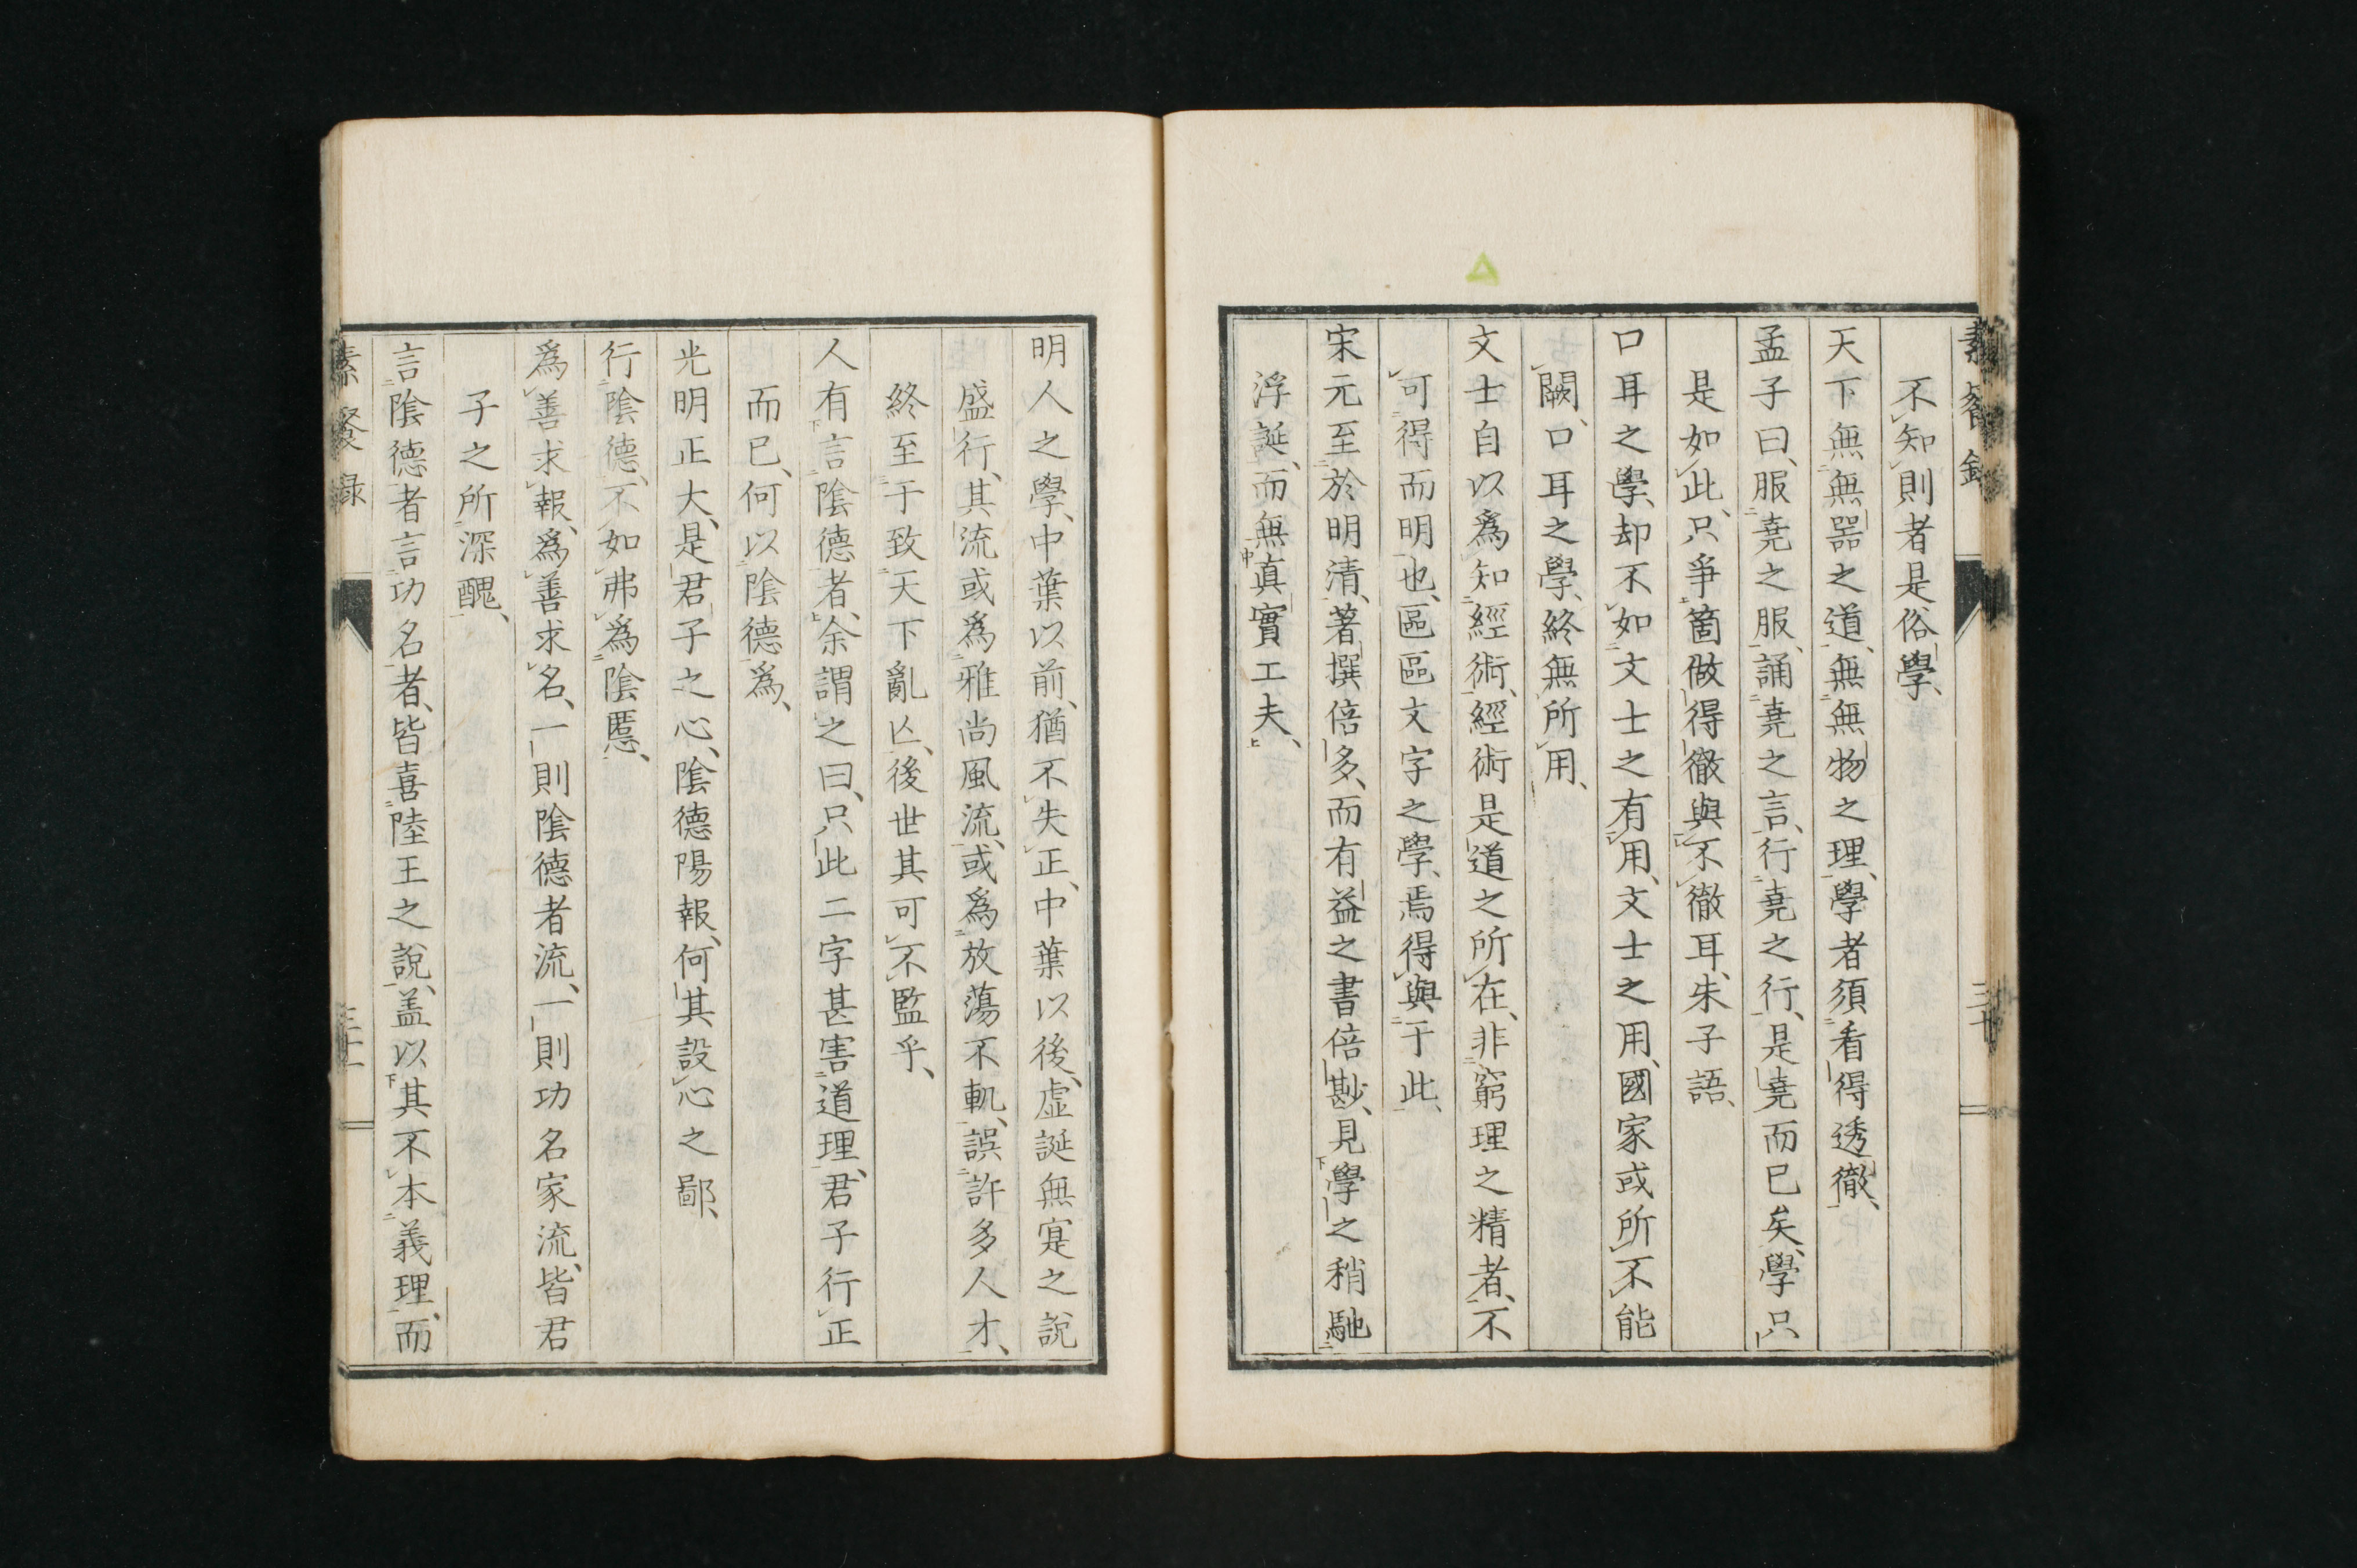 不知則者是俗學、
天下無無器之道、無無物之理、學者須看得透徹、
孟子曰、服堯之服、誦堯之言、行堯之行、是堯而已矣、學只
是如此、只爭箇做得徹與不徹耳、朱子語、
口耳之學、却不如文士之有用、文士之用、國家或所不能
闕、口耳之學、終無所用、
文士自以爲知經術、經術是道之所在、非窮理之精者、不
可得而明也、區區文字之學、焉得與于此、
宋元至於明清、著撰倍多、而有益之書倍尠、見學之稍馳
浮誕、而無真實工夫、
明人之學、中葉以前、猶不失正、中葉以後、虛誕無寔之說
盛行、其流或爲雅尚風流、或爲放蕩不軌、誤許多人才、
終至于致天下亂亾、後世其可不監乎、
人有言陰德者、余謂之曰、只此二字甚害道理、君子行正
而已、何以陰德爲、
光明正大、是君子之心、陰德陽報、何其設心之鄙、
行陰德、不如弗爲陰慝、
爲善求報、爲善求名、一則陰德者流、一則功名家流、皆君
子之所深醜、
言陰德者言功名者、皆喜陸王之說、盖以其不本義理、而
素餐錄
三十一